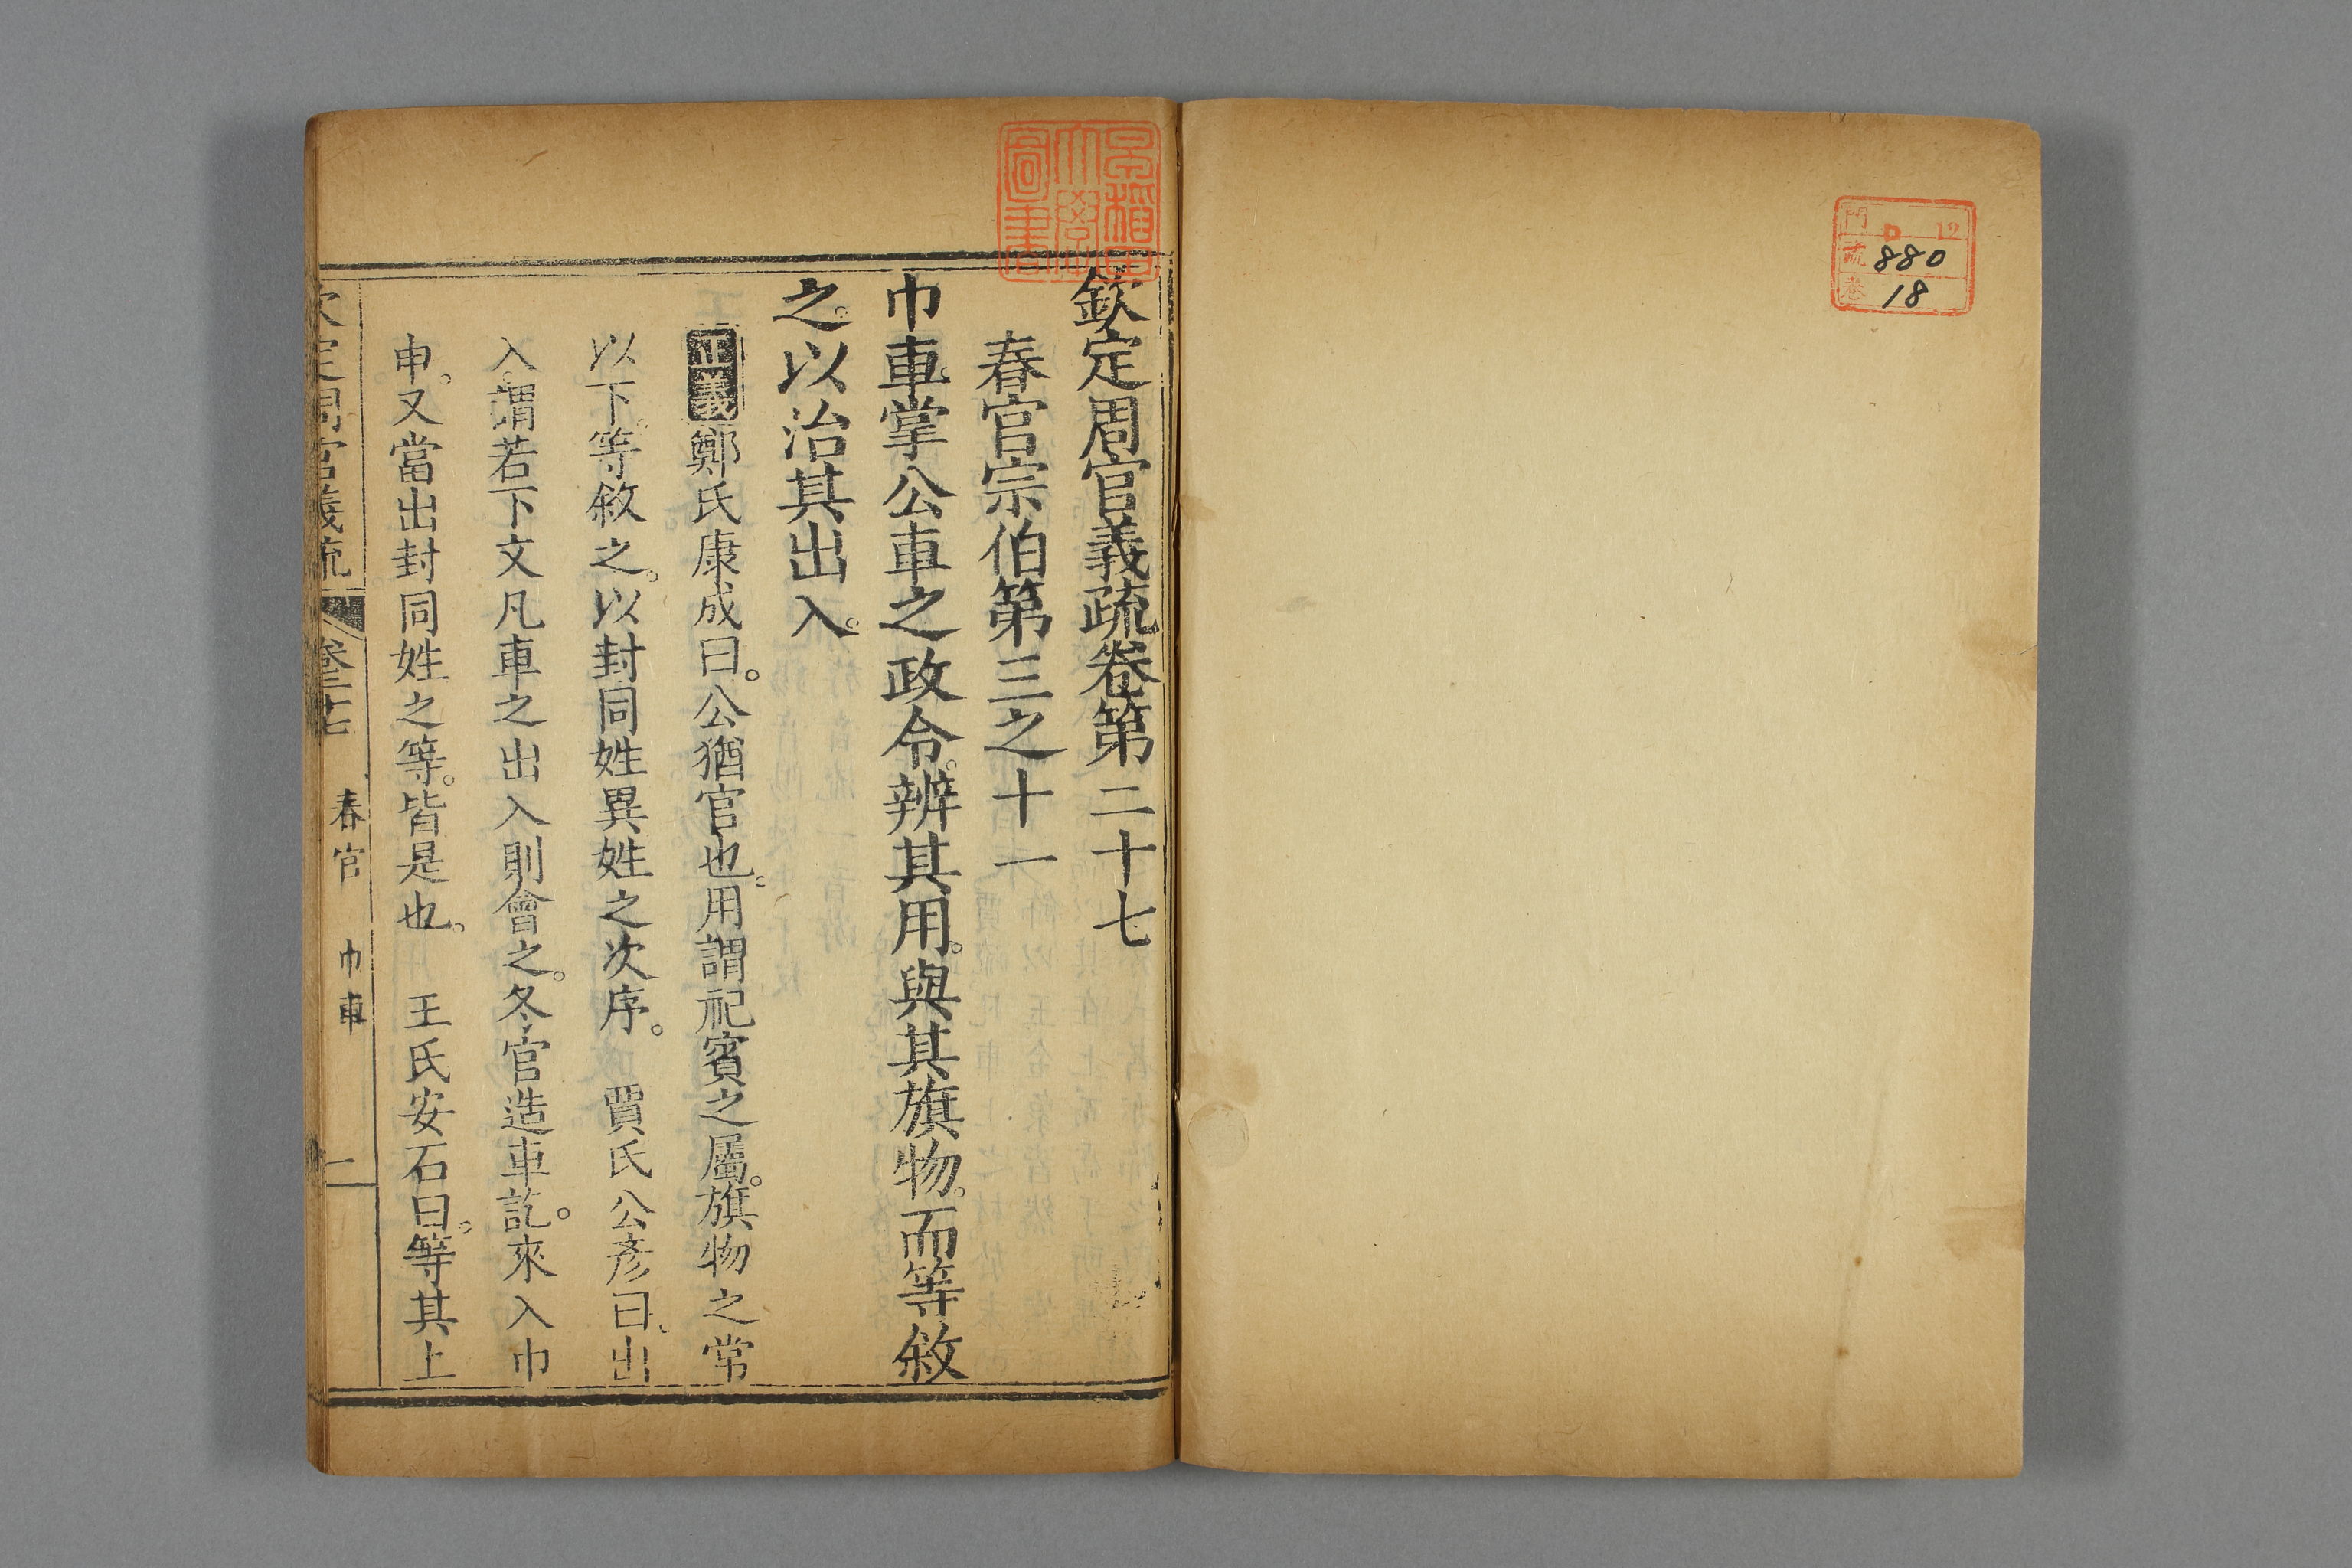 門 ロ 12
號 880
卷 18
早稲田大學圖書
欽定周官義疏卷第二十七
春官宗伯第三之十一
巾車掌公車之政令。辨其用。與其旗物。而等敘
之。以治其出入。
正義鄭氏康成曰。公猶官也。用謂祀賓之屬。旗物之常
以下。等敘之。以封同姓異姓之次序。 賈氏公彥曰。出
入。謂若下文凡車之出入則會之。冬官造車訖。來入巾
車。又當出封同姓之等。皆是也。 王氏安石曰。等其上
欽定周官義疏 卷二十七 春官 巾車 一